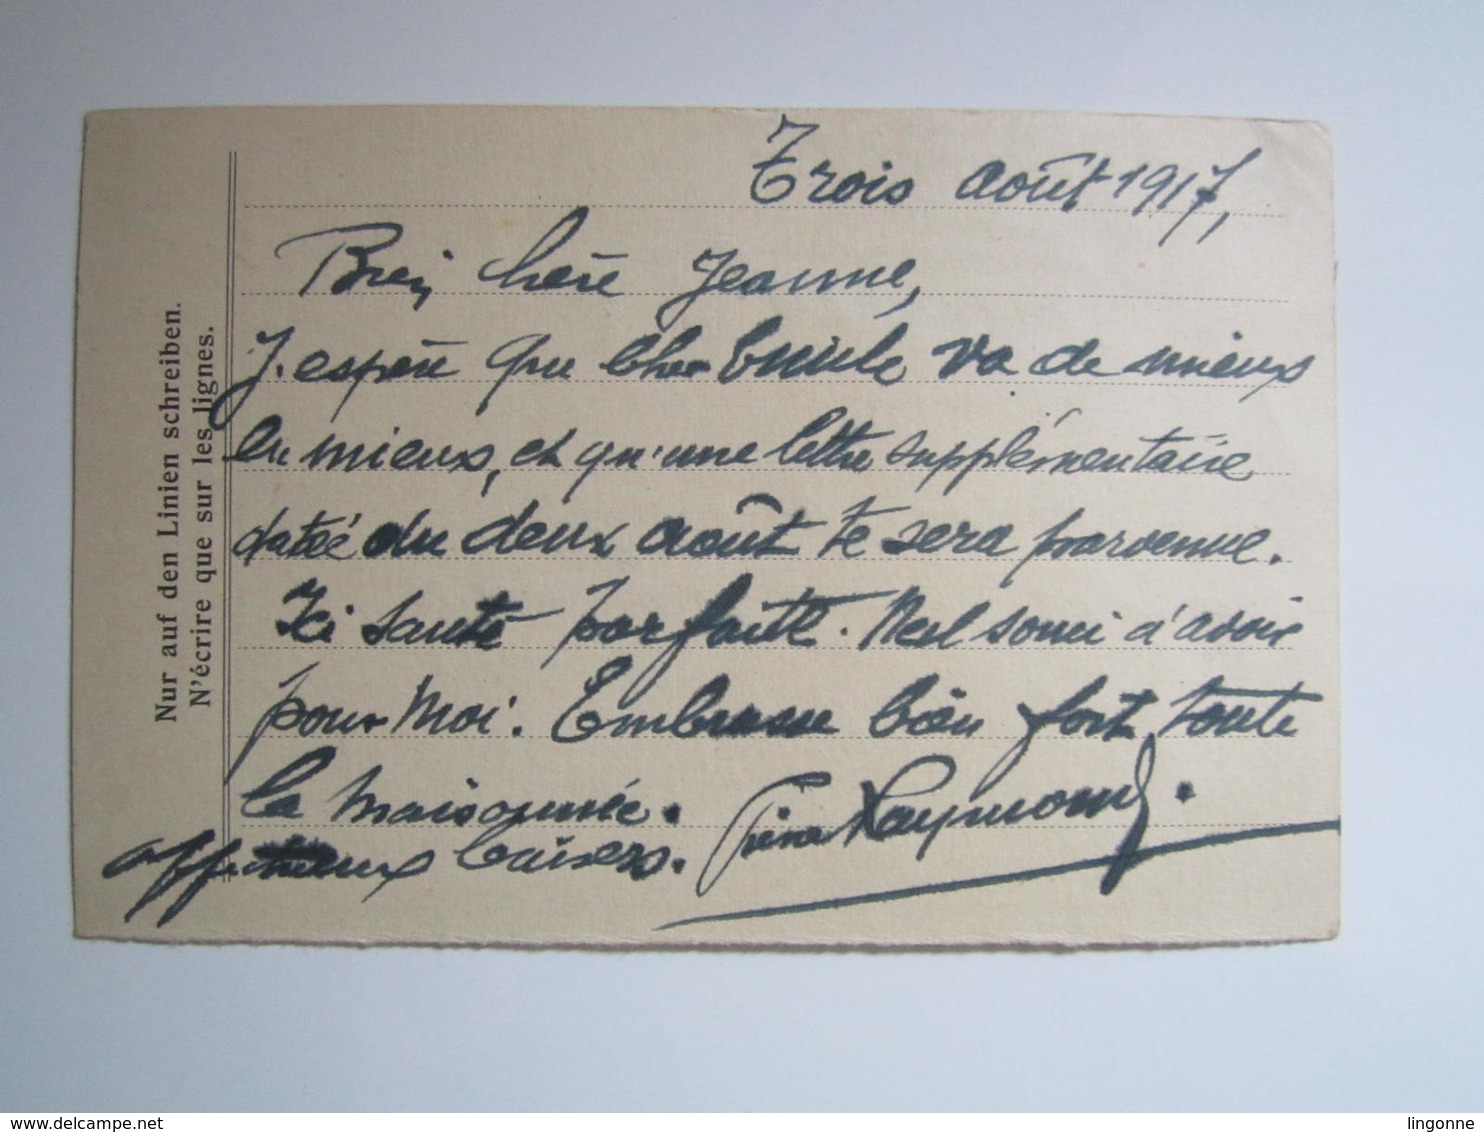 Trois août 1917,
Bien chère Jeanne,
J'espère que cher Emile va de mieux
en mieux, et qu'une lettre supplémentaire
datée du deux août te sera parvenue.
Ici santé parfaite. Nul souci d'avoir
pour moi. Embrasse bien fort toute
la maisonnée.
affectueux baisers. Pierre Raymond.
Nur auf den Linien schreiben.
N'écrire que sur les lignes.
delcampe.net
lingonne